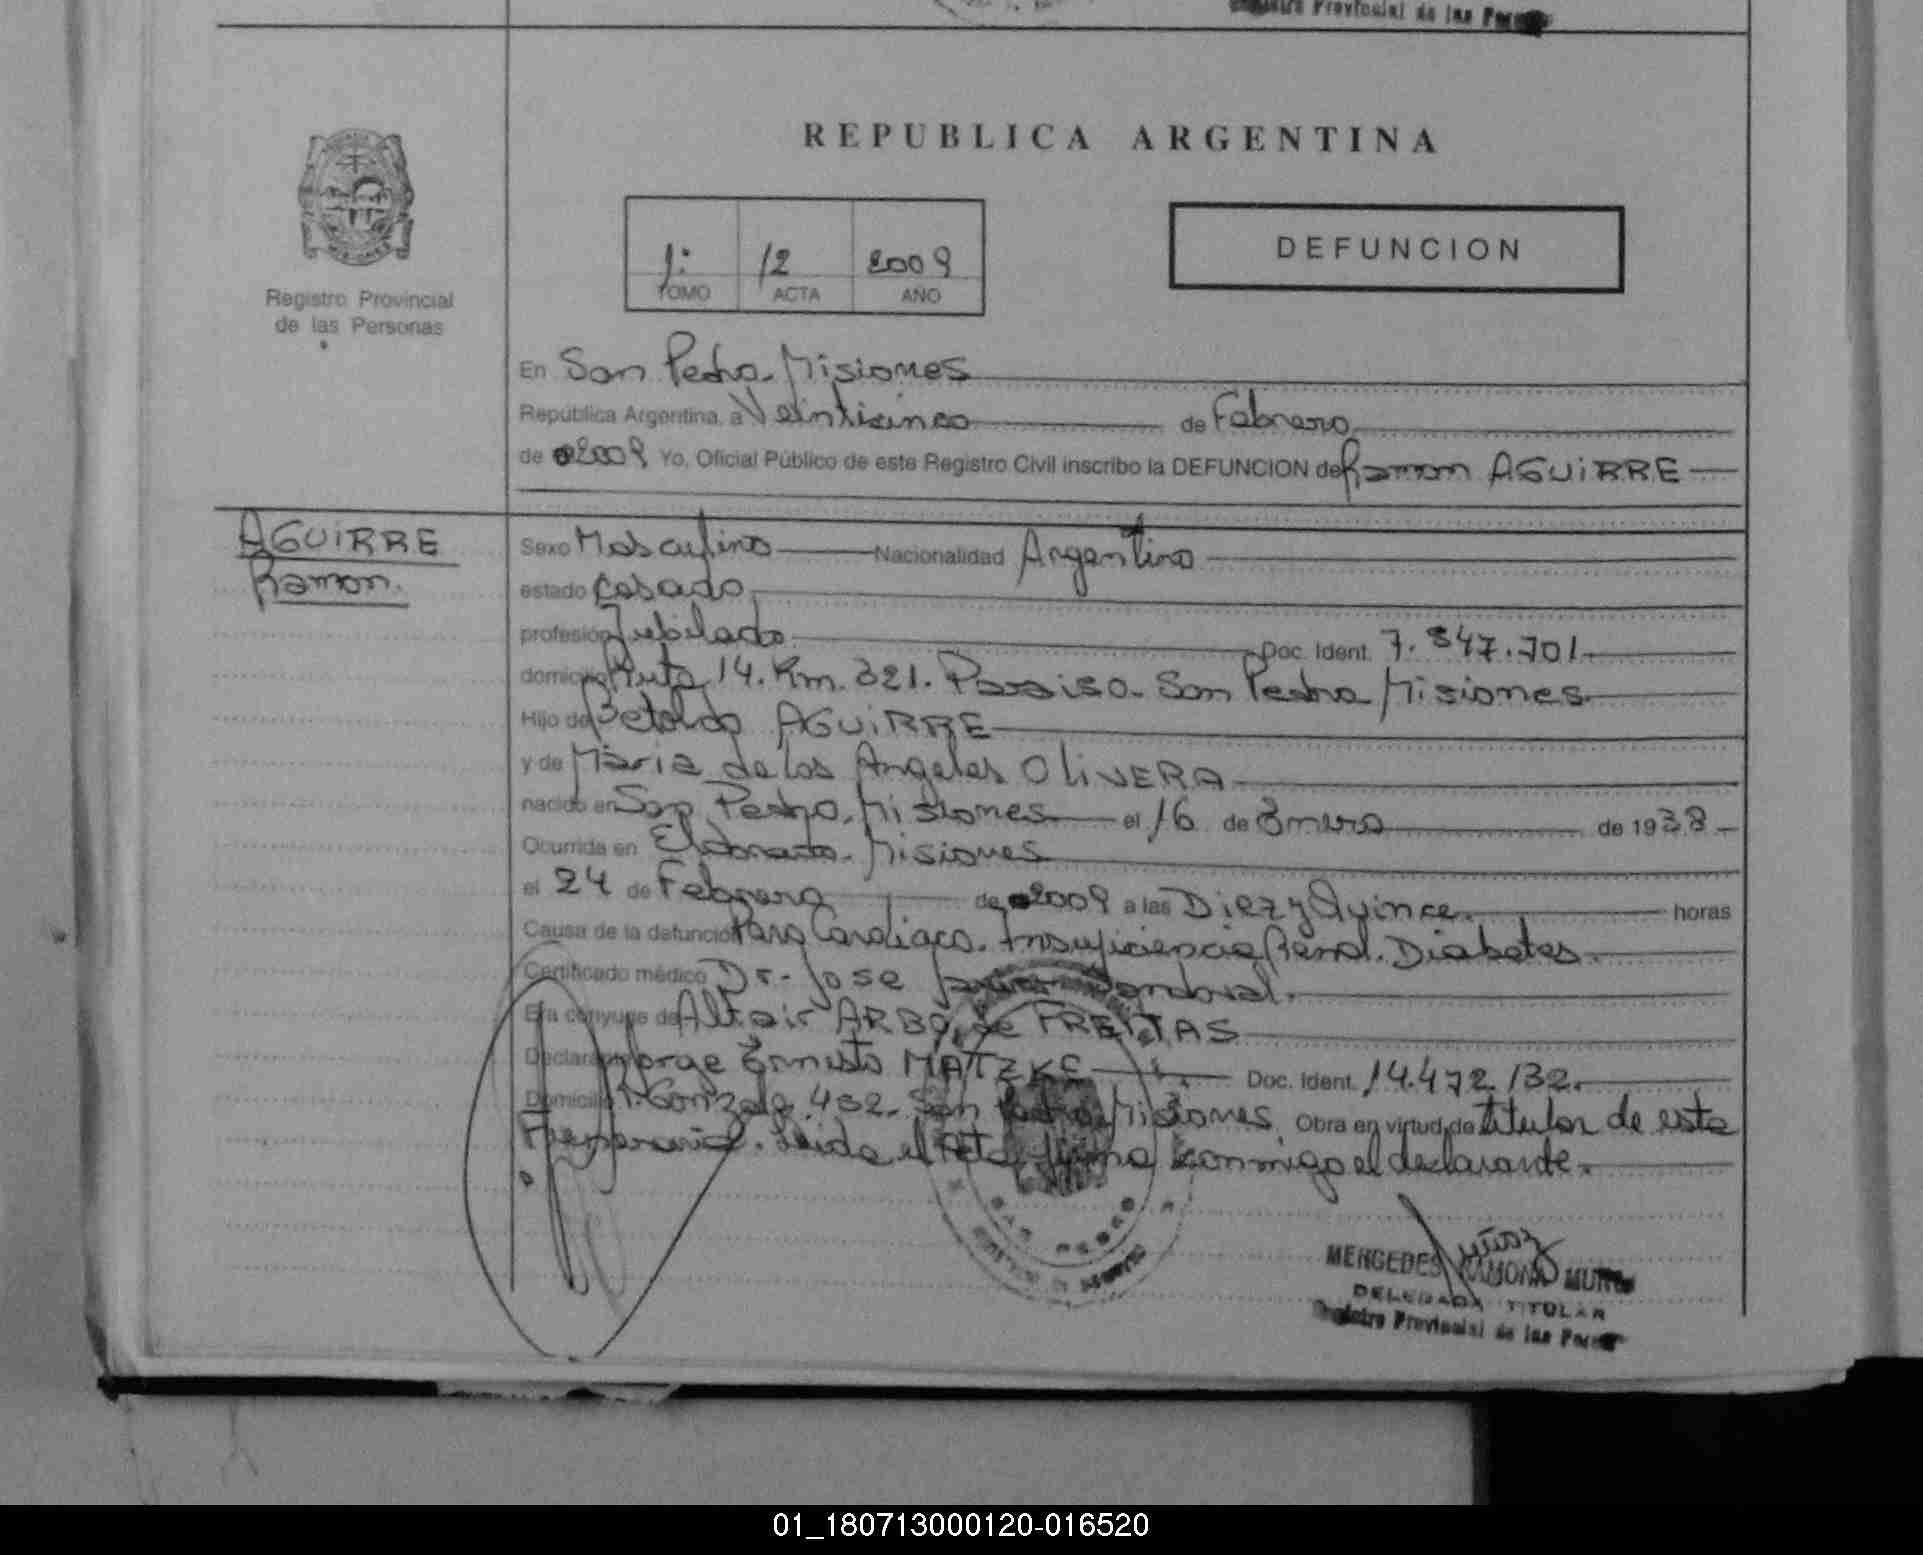 Registro Provincial de las
REPUBLICA ARGENTINA
1: 12 2009
TOMO ACTA AÑO
DEFUNCION
Registro Provincial
de las Personas
En San Pedro. Misiones
República Argentina, a Veinticinco de Febrero
de 2009 Yo, Oficial Público de este Registro Civil inscribo la DEFUNCION de Ramon AGUIRRE
AGUIRRE
Ramon.
Sexo Masculino Nacionalidad Argentino
estado casado
profesión Jubilado Doc. Ident. 7.847.701
domicilio Ruta 14. Km. 321. Paraiso. San Pedro Misiones
Hijo de Betoldo AGUIRRE
y de Maria de los Angeles OLIVERA
nacido en San Pedro. Misiones el 16 de Enero de 1938
Ocurrida en Eldorado. Misiones
el 24 de Febrero de 2009 a las Diez y Quince. horas
Causa de la defunción Paro Cardiaco. Insuficiencia Renal. Diabetes.
Certificado médico Dr. Jose Sandoval.
Era cónyuge de Altair ARBO de FREITAS
Declarante Jorge Ernesto MATZKE Doc. Ident. 14.472.132.
Domicilio 432. San Pedro Misiones. Obra en virtud de titular de esta
Funeraria. Leida el Acta, firma conmigo el declarante.
SAN PEDRO
Muñoz
MERCEDES RAMONA MUÑOZ
DELEGADA TITULAR
Registro Provincial de las
01_180713000120-016520